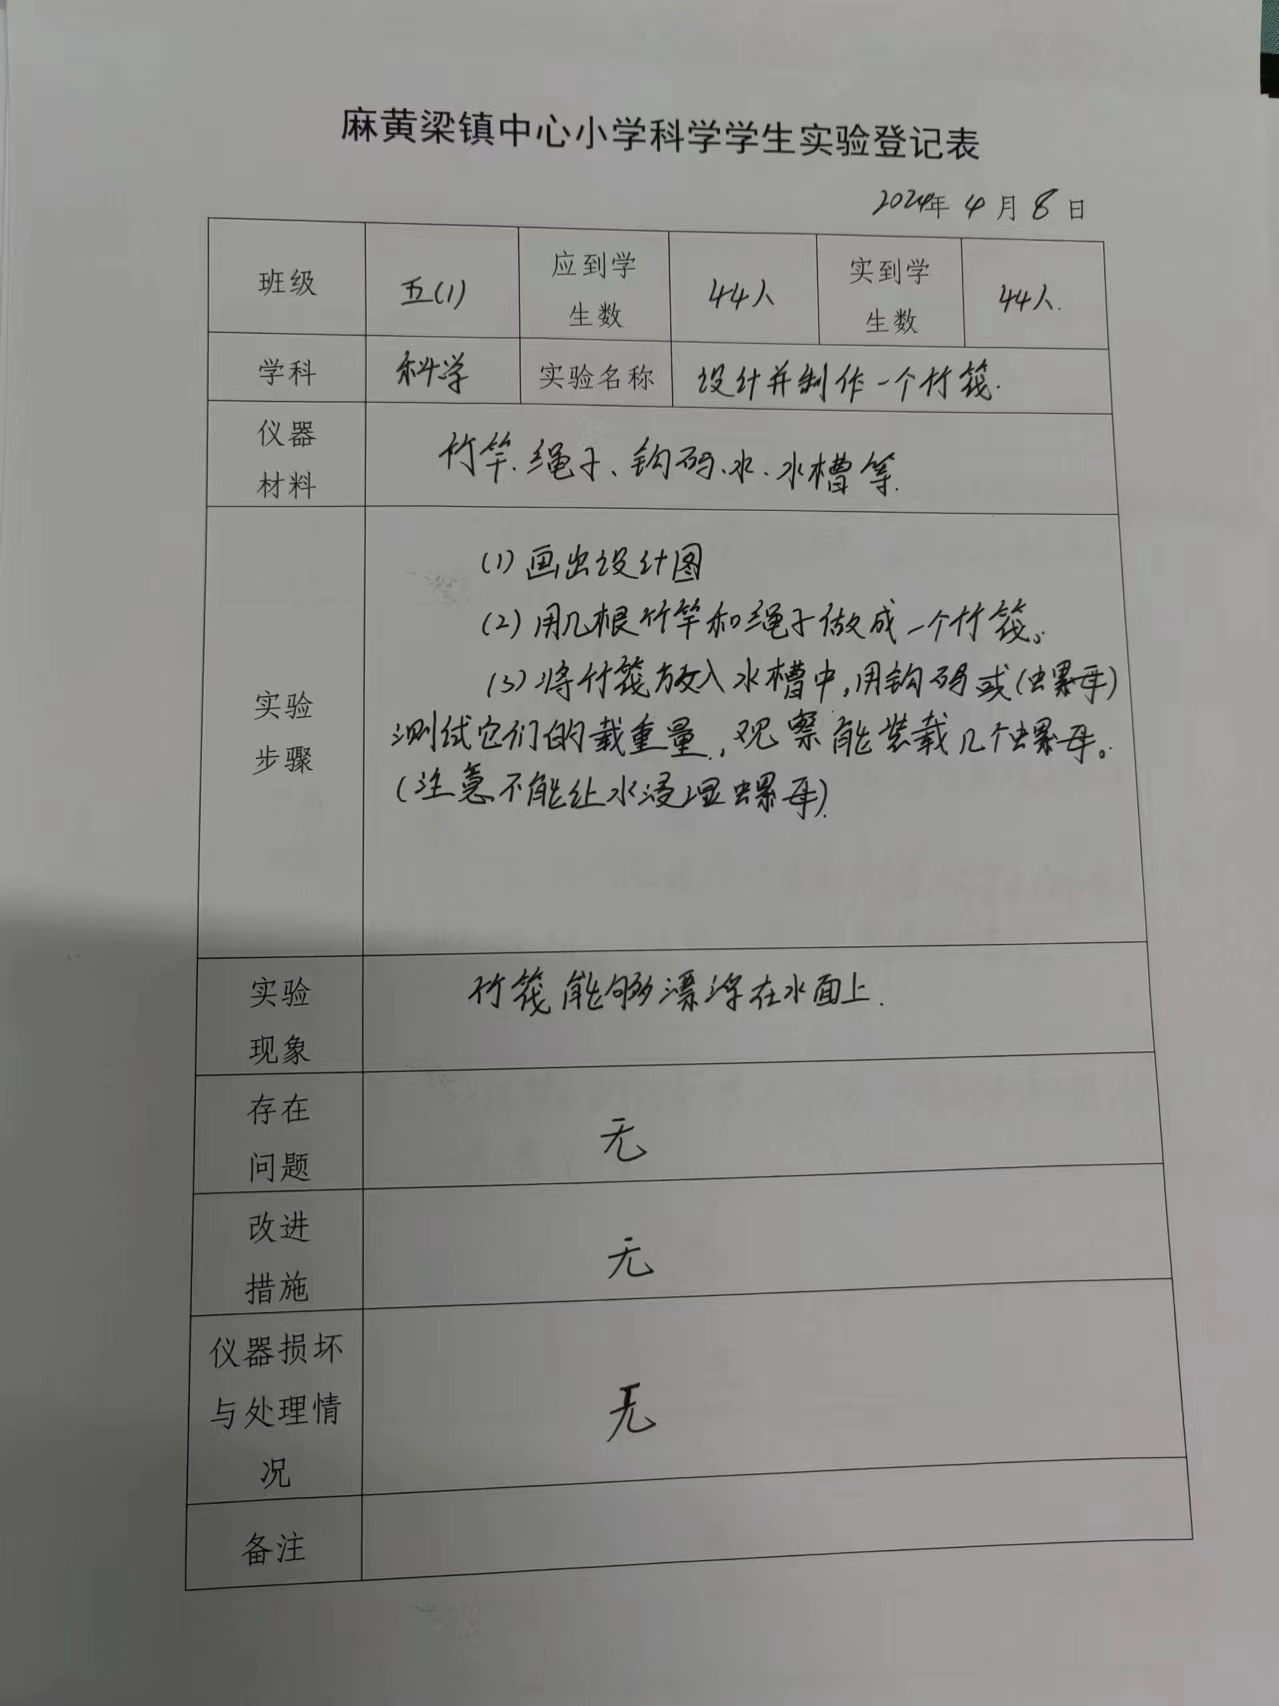 麻黄梁镇中心小学科学学生实验登记表
2024年 4 月 8 日
班级 五(1) 应到学生数 44人 实到学生数 44人.
学科 科学 实验名称 设计并制作一个竹筏.
仪器材料 竹竿、绳子、钩码、水、水槽等.
实验步骤
(1)画出设计图
(2)用几根竹竿和绳子做成一个竹筏。
(3)将竹筏放入水槽中,用钩码或(螺母)
测试它们的载重量,观察能装载几个螺母。
(注意不能让水浸湿螺母).
实验现象 竹筏能够漂浮在水面上.
存在问题 无
改进措施 无
仪器损坏与处理情况 无
备注